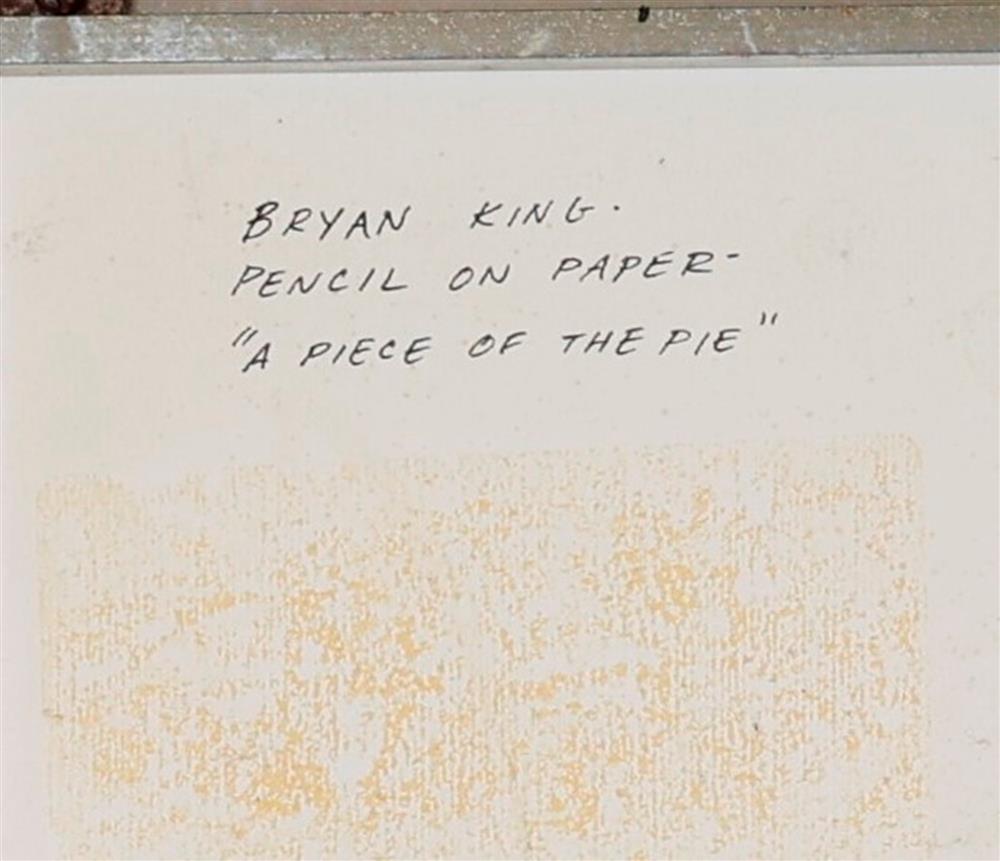 BRYAN KING.
PENCIL ON PAPER-
"A PIECE OF THE PIE"